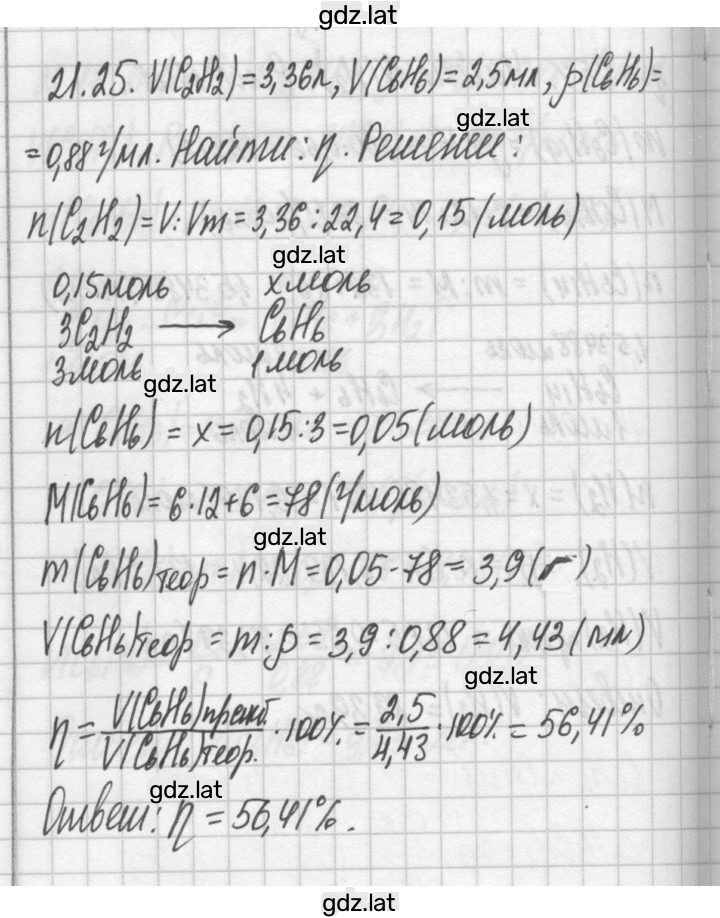 gdz.lat
21.25. V(C₂H₂)=3,36л, V(C₆H₆)=2,5мл, ρ(C₆H₆)=
gdz.lat
=0,88 г/мл. Найти: η. Решение:
n(C₂H₂)=V:Vm=3,36:22,4=0,15(моль)
gdz.lat
0,15моль xмоль
3C₂H₂ ⟶ C₆H₆
3моль 1моль
gdz.lat
n(C₆H₆) = x = 0,15:3=0,05(моль)
M(C₆H₆)=6·12+6=78(г/моль)
gdz.lat
m(C₆H₆)теор = n·M=0,05·78= 3,9(г)
V(C₆H₆)теор = m:ρ = 3,9:0,88=4,43(мл)
gdz.lat
η = V(C₆H₆)практ. / V(C₆H₆)теор. ·100% = 2,5 / 4,43 ·100% = 56,41%
gdz.lat
Ответ: η = 56,41%.
gdz.lat